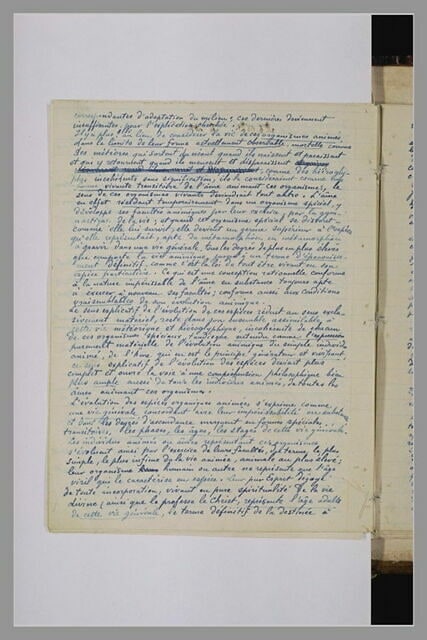 correspondantes d'adaptation du milieu; ces dernières deviennent
insuffisantes pour l'explication cherchée.
Il y a plus, au lieu de considérer la vie de ces organismes animés,
dans la limite de leur forme actuellement observable, mortelle comme
des météores qui sortent du néant quand ils naissent et paraissent
et qui y retournent quand ils meurent et disparaissent
comme des hiérogly-
phes incohérents sans signification, si on la considérait comme la
forme vivante transitoire de l'âme animant ces organismes; le
sens de ces organismes vivants deviendrait tout autre. L'âme
en effet résidant temporairement dans un organisme spécial, y
développe ses facultés animiques par leur exercice, par la gym-
nastique de la vie; et quand cet organisme spécial se dissout,
comme elle lui survit, elle devient un germe supérieur à l'espèce
qu'elle représentait, apte de métamorphose en métamorphose
à gravir dans une vie générale, tous les degrés de plus en plus élevés
que comporte la vie animique, jusqu'à un terme d'épanouisse-
ment définitif. Comme c'est la loi de tout être vivant en son
espèce particulière. Ce qui est une conception rationnelle conforme
à la nature impérissable de l'âme en substance toujours apte
à exercer à nouveau ses facultés; conforme aussi aux conditions
vraisemblables de son évolution animique.
Le sens explicatif de l'évolution de ces espèces réduit au sens exclu-
sivement matériel, reste dans son ensemble assimilable à
cette vie météorique et hiéroglyphique, incohérente de chacun
de ces organismes spéciaux; analogue entendu comme l'expression
purement matérielle de l'évolution animique du simple individu
animé, de l'âme qui en est le principe générateur et vivifiant,
ce sens explicatif de l'évolution des espèces devient plus
complet et ouvre la voie à une compréhension philosophique bien
plus ample aussi de tous les individus animés, de toutes les
âmes animant ces organismes.
L'évolution des espèces organiques animées s'exprime comme
une vie générale, concordant avec leur impérissabilité en substance
et dont les degrés d'ascendance marquent en formes spéciales,
transitoires, les phases, les âges, les stages de cette vie générale.
Ces individus animés ou âmes représentant ces organismes
s'évoluent ainsi par l'exercice de leurs facultés, du terme le plus
simple, le plus infime de la vie animée, animale au plus élevé;
leur organisme humain ou autre ne représente que l'âge
viril qui le caractérise en espèce. Leur pur Esprit dégagé
de toute incorporation, vivant en pure spiritualité de la vie
divine; ainsi que le professe le Christ, représente l'âge adulte
de cette vie générale, le terme définitif de la destinée à